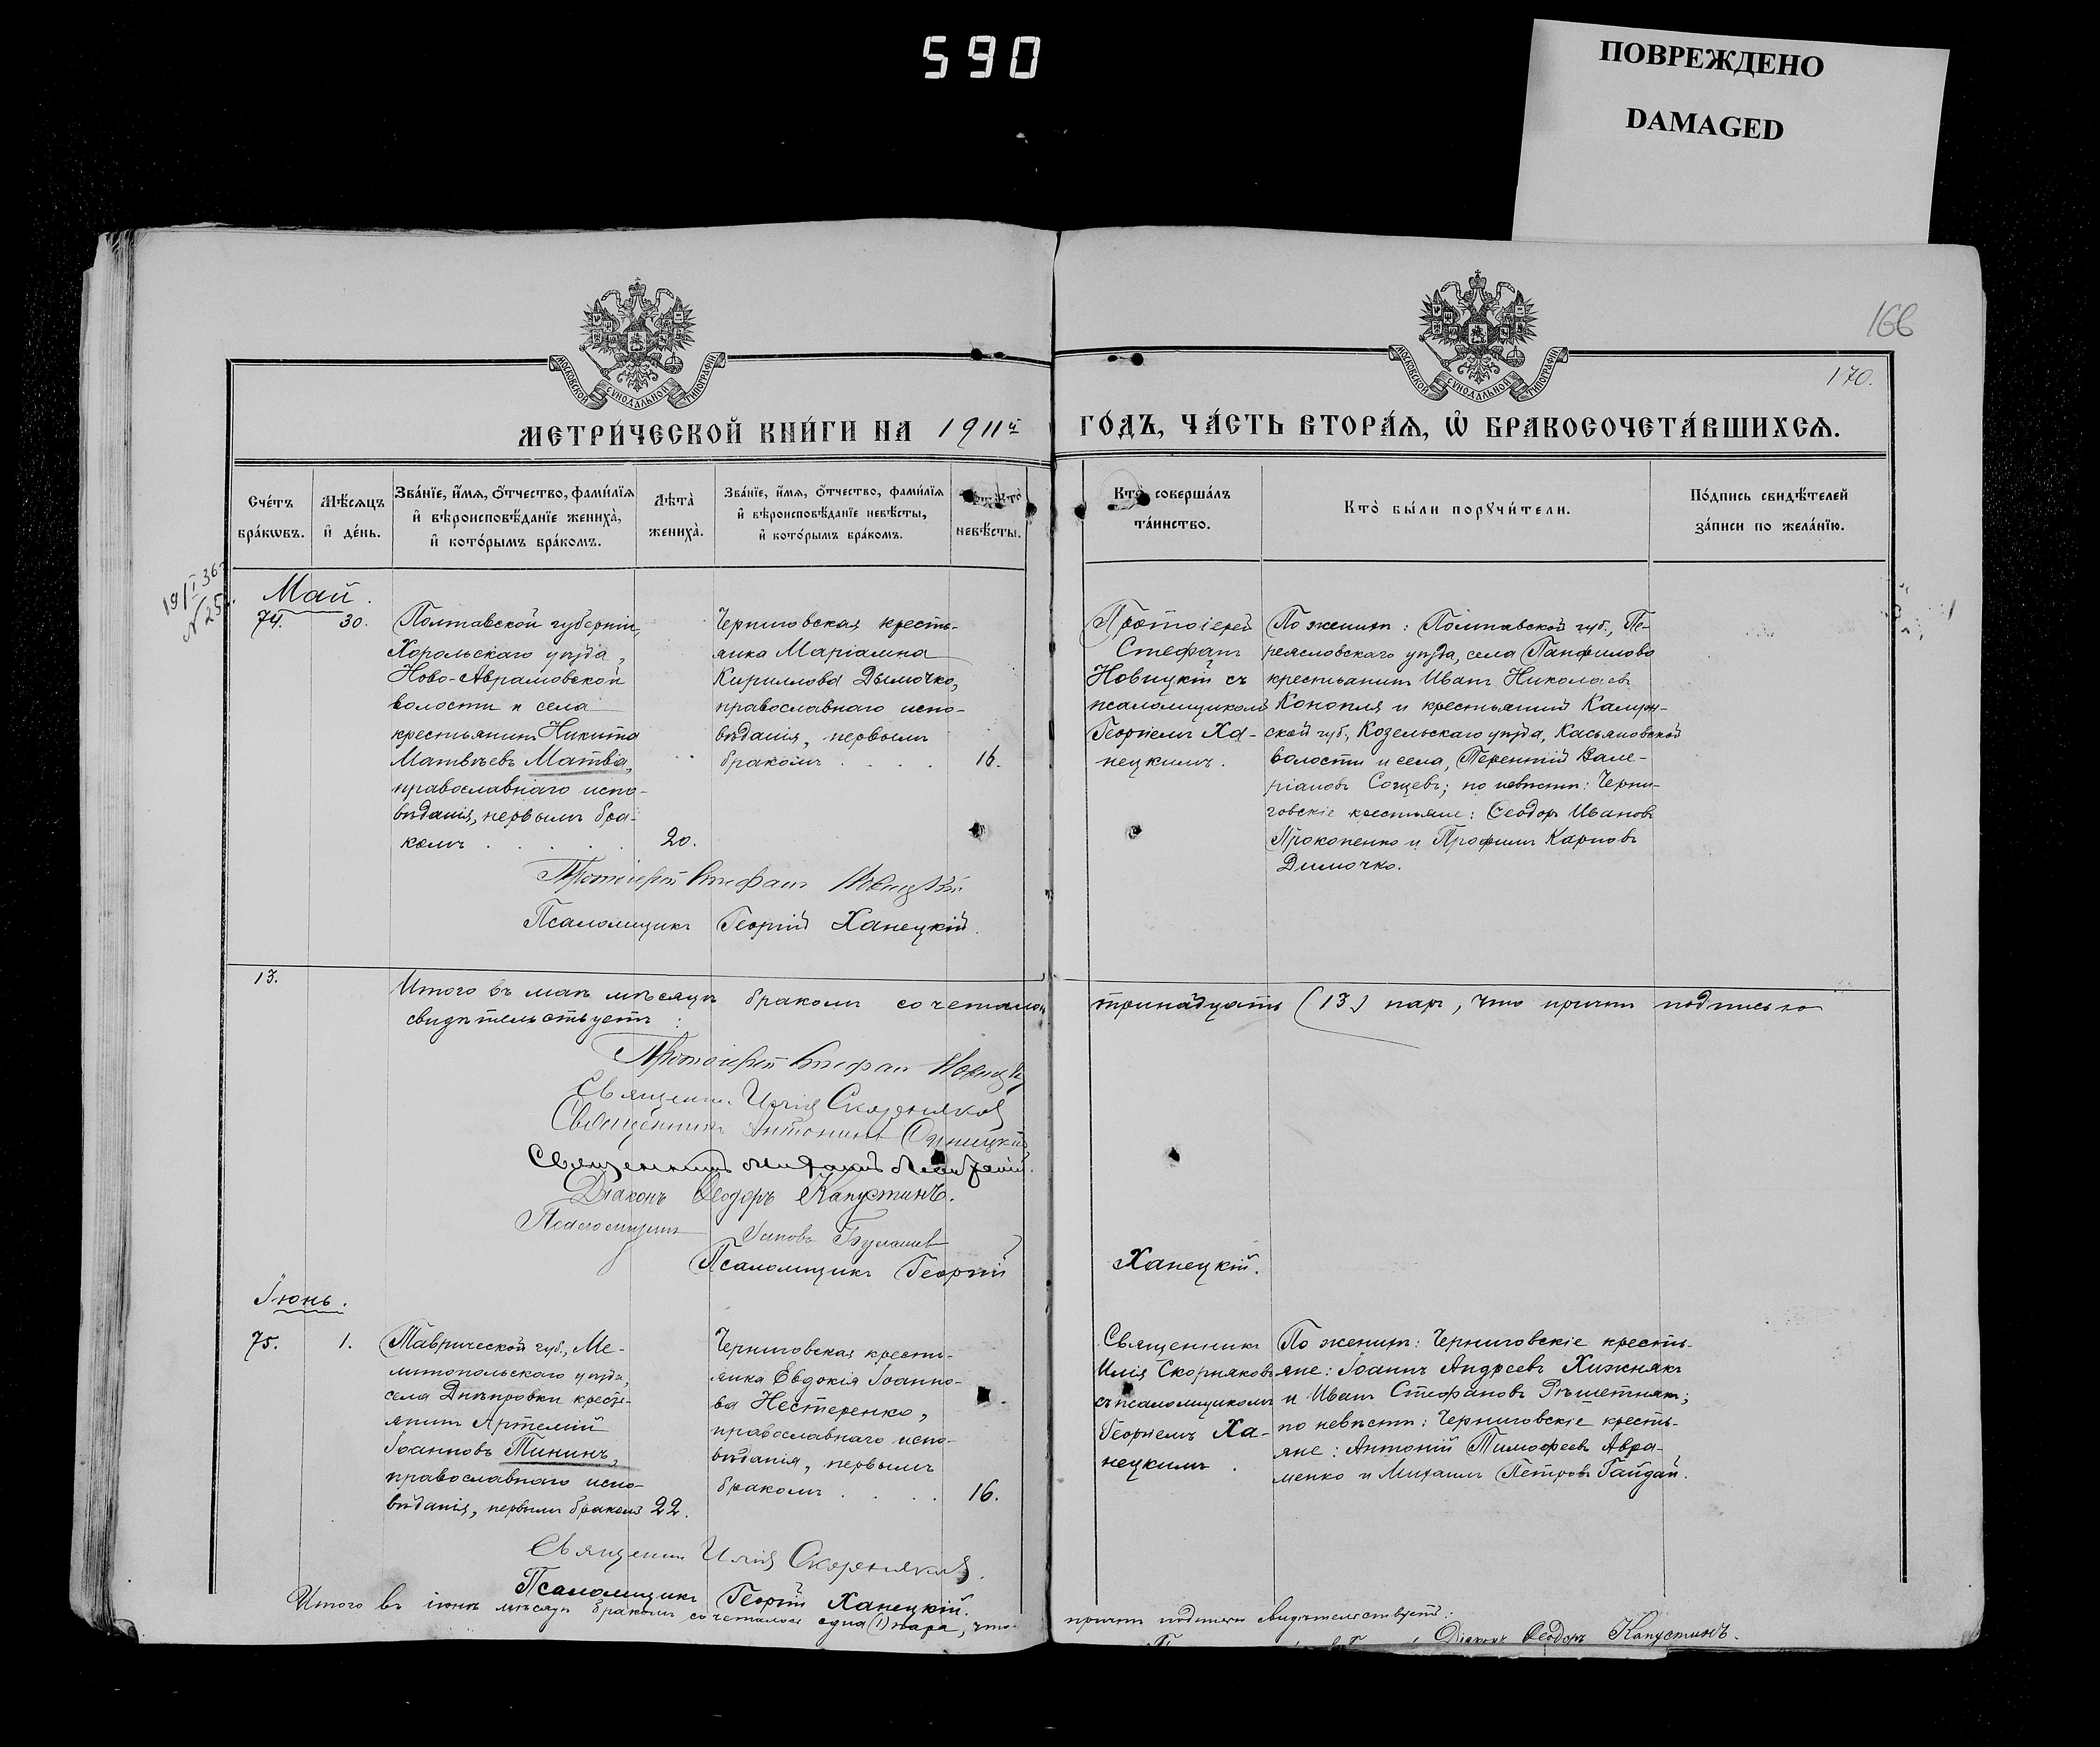 590
ПОВРЕЖДЕНО
DAMAGED
166
170.
МОСКОВСКОЙ СУНОДАЛЬНОЙ ТИПОГРАФІИ
МОСКОВСКОЙ СУНОДАЛЬНОЙ ТИПОГРАФІИ
МЕТРИ́ЧЕСКОЙ КНИ́ГИ НА 1911й ГО́ДЪ, ЧА́СТЬ ВТОРА́Ѧ, Ѡ҆ БРАКОСОЧЕТА́ВШИХСѦ.
Сче́тъ
бра́кѡвъ.
Мѣ́сяцъ
и҆ де́нь.
Зва́нїе, и҆́мя, ѻ҆́тчество, фами́лїя
и҆ вѣроисповѣ́данїе жениха̀,
и҆ кото́рымъ бра́комъ.
Лѣта̀
жениха̀.
Зва́нїе, и҆́мя, ѻ҆́тчество, фами́лїя
и҆ вѣроисповѣ́данїе невѣ́сты,
и҆ кото́рымъ бра́комъ.
невѣ́сты.
Кто̀ соверша́лъ
та́инство.
Кто̀ бы́ли порꙋчи́тели.
По́дпись свидѣ́телей
за́писи по жела́нїю.
Май.
74. 30.
Полтавской губерніи,
Хорольскаго уѣзда,
Ново-Аврамовской
волости и села
крестьянинъ Никита
Матвѣевъ Матвіа,
православнаго испо-
вѣданія, первымъ бра-
комъ . . . . . 20.
Черниговская кресть-
янка Маріамна
Кириллова Дымочко,
православнаго испо-
вѣданія, первымъ
бракомъ . . . . 16.
Протоіерей
Стефанъ
Новицкій съ
псаломщикомъ
Георгіемъ Ха-
нецкимъ.
По женихѣ: Полтавской губ., Пе-
реясловскаго уѣзда, села Панфилова
крестьянинъ Иванъ Николаевъ
Конопля и крестьянинъ Калуж-
ской губ., Козельскаго уѣзда, Касьяновской
волости и села, Терентій Вале-
ріановъ; по невѣстѣ: Черни-
говскіе крестьяне: Ѳеодоръ Ивановъ
Прокопенко и Трофимъ Карповъ
Димочко.
Протоіерей Стефанъ Новицкій
Псаломщикъ Георгій Ханецкій.
13.
Итого въ маѣ мѣсяцѣ бракомъ сочеталось тринадцать (13) паръ, что причтъ подписью
свидѣтельствуетъ:
Протоіерей Стефанъ Новицкій
Священн. Илія Скорняковъ
Священникъ Антонинъ
Священникъ
Діаконъ Ѳеодоръ Капустинъ.
Псаломщикъ
Псаломщикъ Георгій Ханецкій.
Іюнь.
75. 1.
Таврической губ., Ме-
литопольскаго уѣзда,
села Днѣпровки кресть-
янинъ Артемій
Іоанновъ Тининъ,
православнаго испо-
вѣданія, первымъ бракомъ 22.
Черниговская кресть-
янка Евдокія Іоанно-
ва Нестеренко,
православнаго испо-
вѣданія, первымъ
бракомъ . . . . 16.
Священникъ
Илія Скорняковъ
съ псаломщикомъ
Георгіемъ Ха-
нецкимъ.
По женихѣ: Черниговскіе кресть-
яне: Іоаннъ Андреевъ Хижнякъ
и Иванъ Стефановъ Рѣшетнякъ;
по невѣстѣ: Черниговскіе кресть-
яне: Антоній Тимофеевъ Авра-
менко и Михаилъ Петровъ Гайдай.
Священн. Илія Скорняковъ.
Псаломщикъ Георгій Ханецкій.
Итого въ іюнѣ мѣсяцѣ бракомъ сочеталось одна (1) пара, что причтъ подписью свидѣтельствуетъ:
Діаконъ Ѳеодоръ Капустинъ.